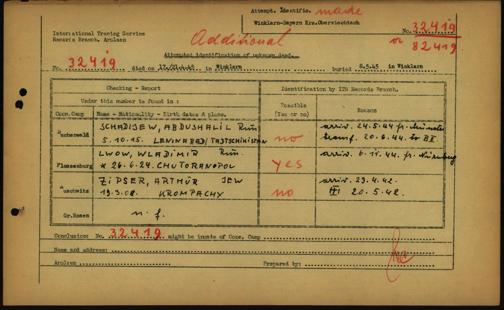 Attempt. Identific. made
Winklarn-Bayern Krs.Oberviechtach
International Tracing Service
Records Branch, Arolsen
Additional
No. 32419
or 82419
Attempted identification of unknown dead.
No. 32419 died on in Winklarn buried 8.5.45 in Winklarn
Checking - Report
Identification by ITS Records Branch.
Under this number is found in:
Possible (Yes or no)
Reason
Conc.Camp Name - Nationality - Birth dates & place.
Buchenwald SCHADIJEW, ABDUSHALIL Russ
5. 10. 15. LENINABAD/TADSCHIKISTAN
no
arriv. 24.5.44 fr.
transf. 20.6.44 to
Flossenburg LWOW, WLADIMIR Russ
* 26.6.24. CHUTORANOPOL
yes
arriv. 6.11.44 fr. Nürnberg
Auschwitz ZIPSER, ARTHUR JEW
19.3.08. KROMPACHY
no
arriv. 29.4.42.
20.5.42.
Gr.Rosen n. f.
Conclusion: No. 32419 might be inmate of Conc. Camp
Name and address:
Arolsen Prepared by: